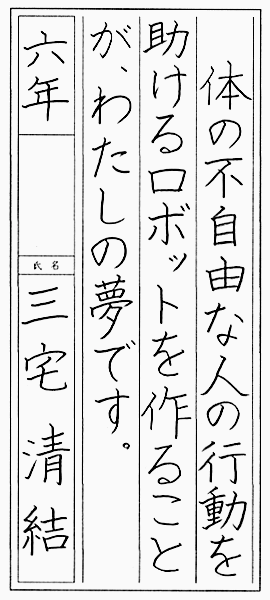 体の不自由な人の行動を
助けるロボットを作ること
が、わたしの夢です。
六年
氏名
三宅清結